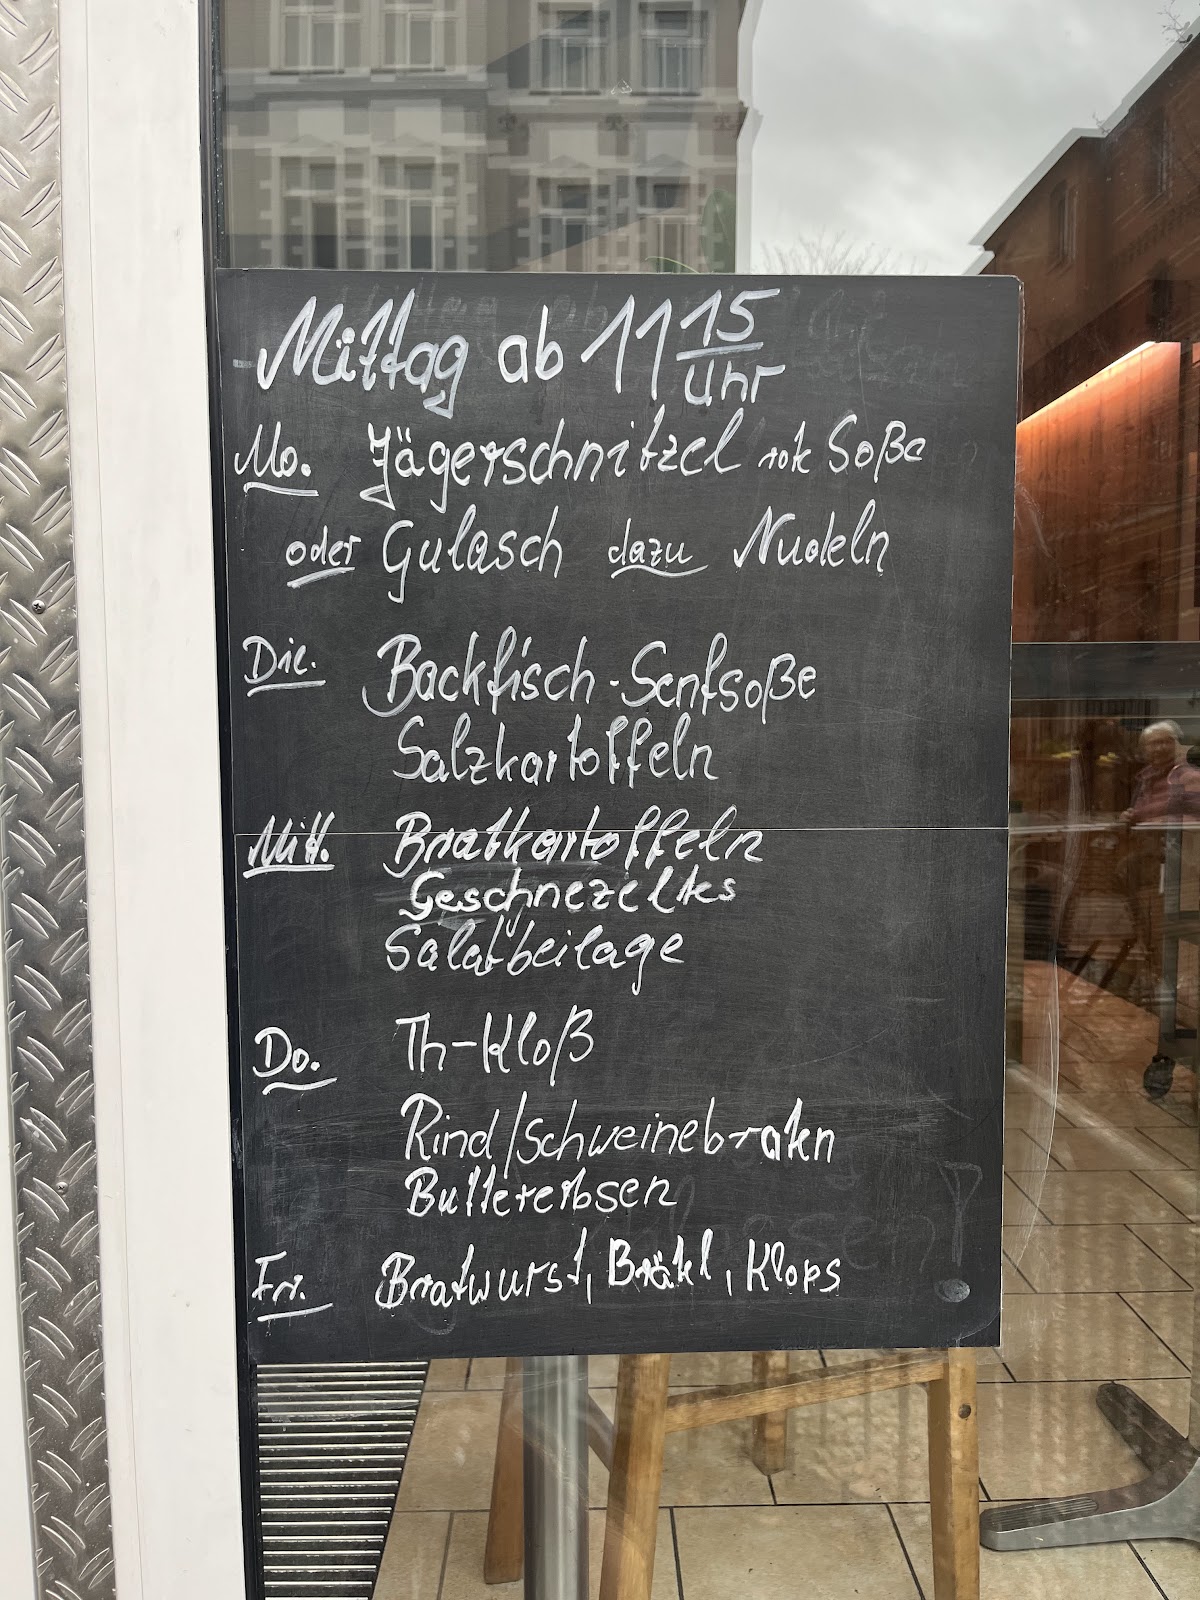 Mittag ab 11 15 Uhr
Mo. Jägerschnitzel rote Soße
oder Gulasch dazu Nudeln
Die. Backfisch-Senfsoße
Salzkartoffeln
Mitt. Bratkartoffeln
Geschnezeltes
Salatbeilage
Do. Th-Kloß
Rind/Schweinebraten
Buttererbsen
Fri. Bratwurst, Brätel, Klops